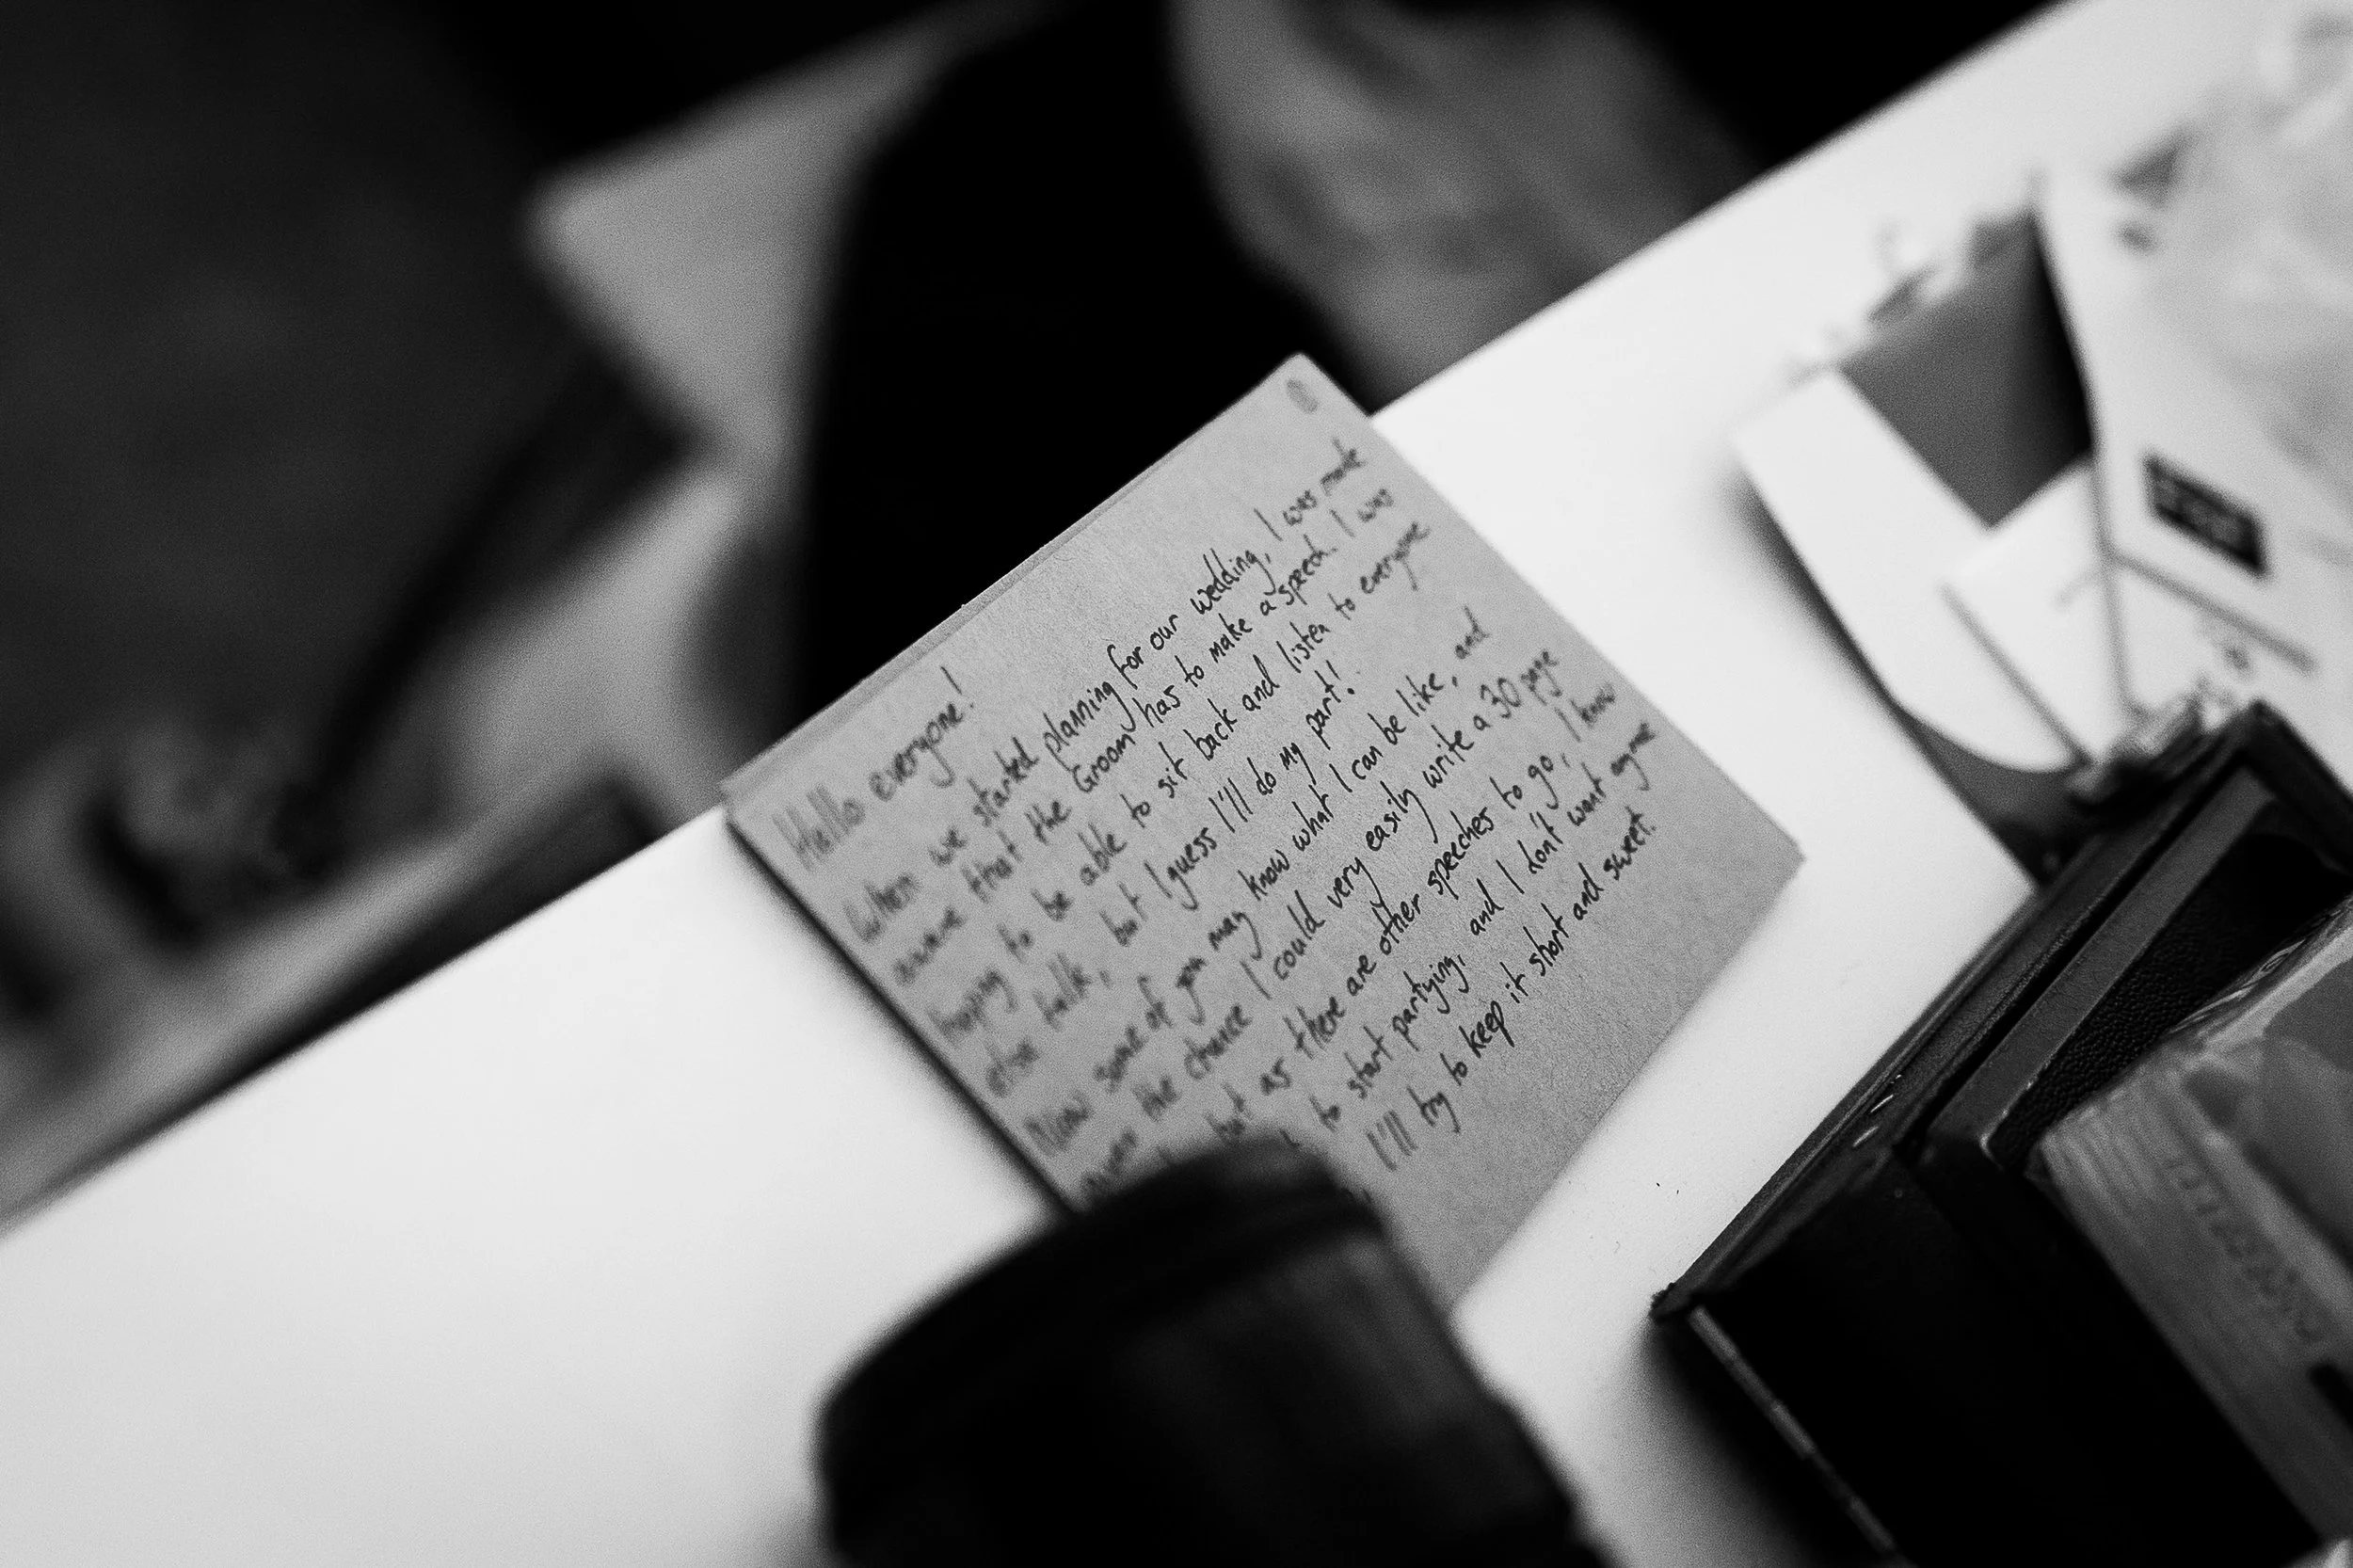 Hello everyone!
When we started planning for our wedding, I was made
aware that the Groom has to make a speech. I was
hoping to be able to sit back and listen to everyone
else talk, but I guess I'll do my part!
Now some of you may know what I can be like, and
given the chance I could very easily write a 30 page
but as there are other speeches to go, I know
to start partying, and I don't want anyone
I'll try to keep it short and sweet.